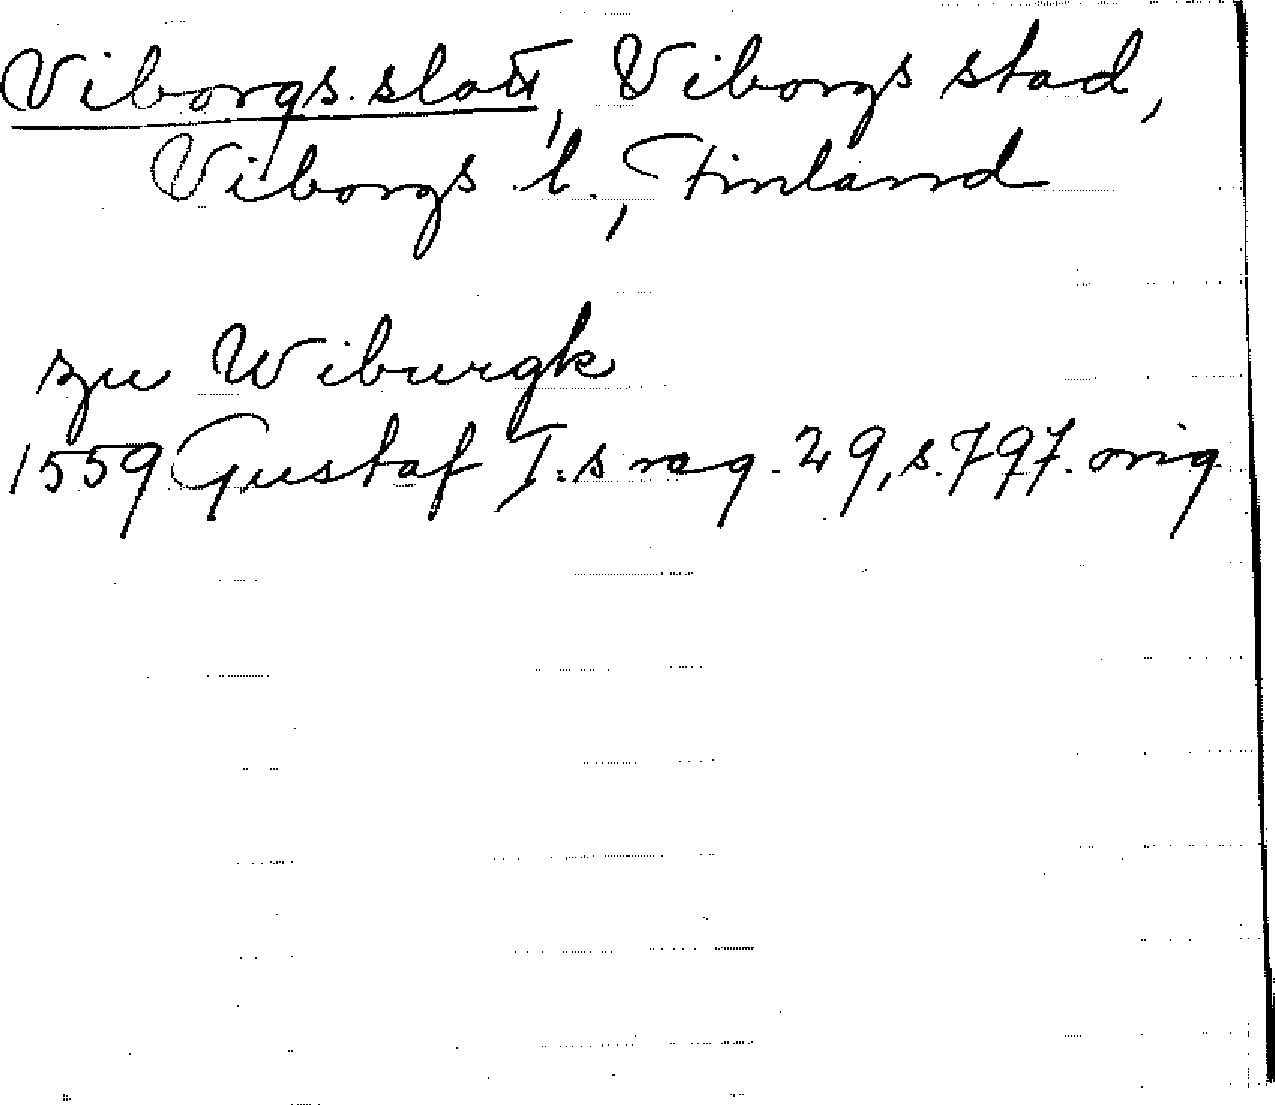 Viborgs slott, Viborgs stad,
Viborgs l., Finland
zu Wiburgk
1559 Gustaf I:s reg. 29, s. 797. orig